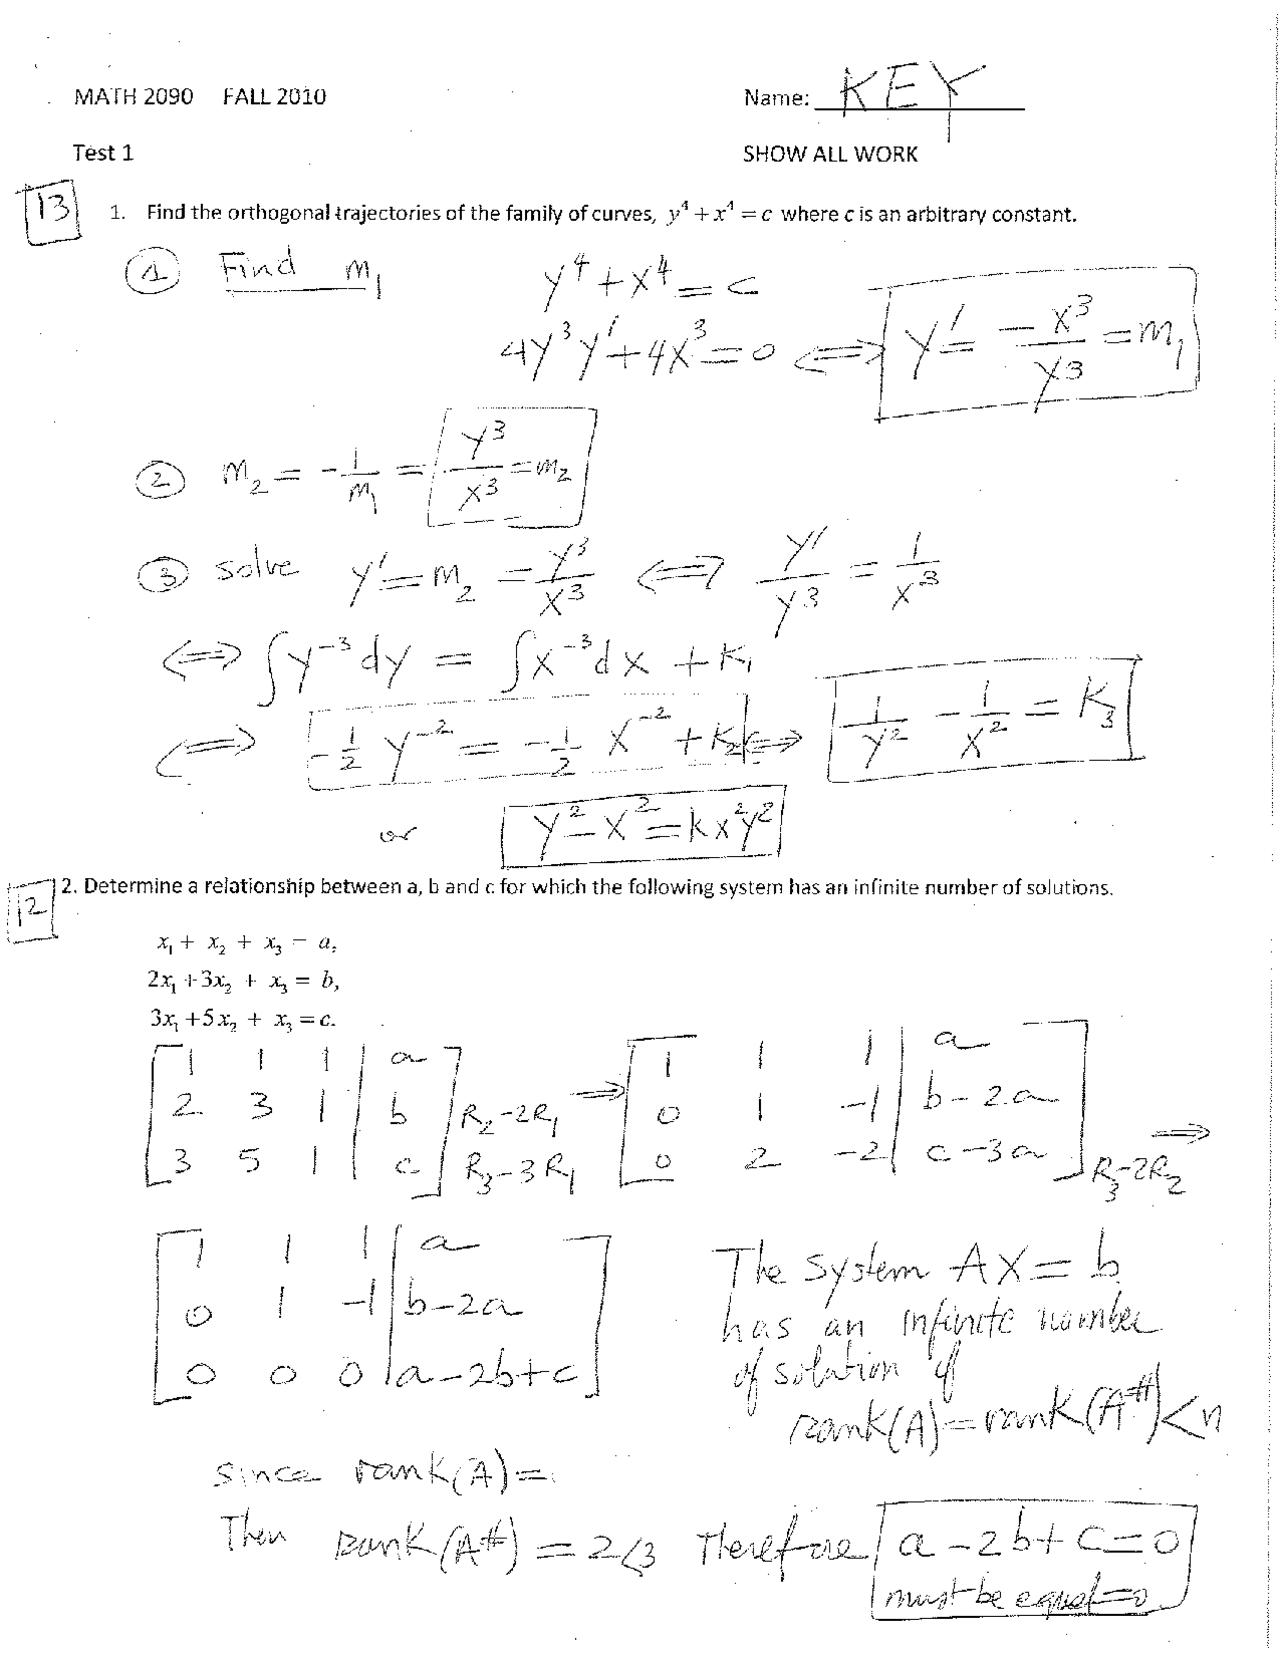 MATH 2090 FALL 2010 Name: KEY
Test 1 SHOW ALL WORK
13 1. Find the orthogonal trajectories of the family of curves, y⁴ + x⁴ = c where c is an arbitrary constant.
① Find m₁ y⁴ + x⁴ = c
4y³y' + 4x³ = 0 ⟺ y' = -x³/y³ = m₁
② m₂ = -1/m₁ = y³/x³ = m₂
③ solve y' = m₂ = y³/x³ ⟺ y'/y³ = 1/x³
⟺ ∫y⁻³dy = ∫x⁻³dx + K₁
⟺ -1/2 y⁻² = -1/2 x⁻² + K₂ ⟺ 1/y² - 1/x² = K₃
or y² - x² = kx²y²
12 2. Determine a relationship between a, b and c for which the following system has an infinite number of solutions.
x₁ + x₂ + x₃ = a,
2x₁ + 3x₂ + x₃ = b,
3x₁ + 5x₂ + x₃ = c.
[1 1 1 | a] ⟹ [1 1 1 | a]
[2 3 1 | b] R₂-2R₁ [0 1 -1 | b-2a]
[3 5 1 | c] R₃-3R₁ [0 2 -2 | c-3a] R₃-2R₂ ⟹
[1 1 1 | a]
[0 1 -1 | b-2a]
[0 0 0 | a-2b+c]
The system AX = b
has an infinite number
of solution if
rank(A) = rank(A#) < n
since rank(A) =
Then rank(A#) = 2<3 Therefore a - 2b + c = 0
must be equal = 0